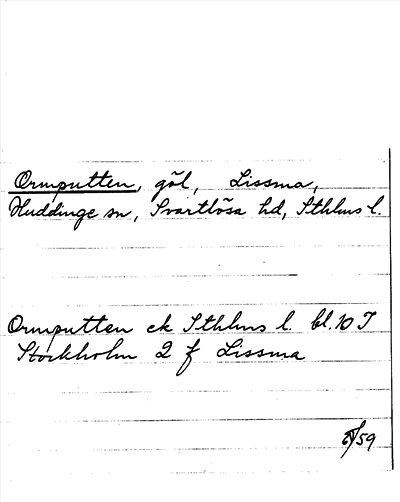 Ormputten, göl, Lissma,
Huddinge sn, Svartlösa hd, Sthlms l.
Ormputten ek Sthlms l. bl. 10 I
Stockholm 2 f Lissma